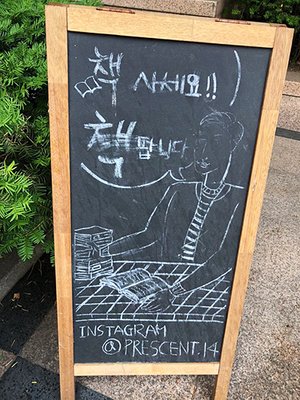 책 사세요!!
책팝니다
INSTAGRAM
@PRESCENT.14